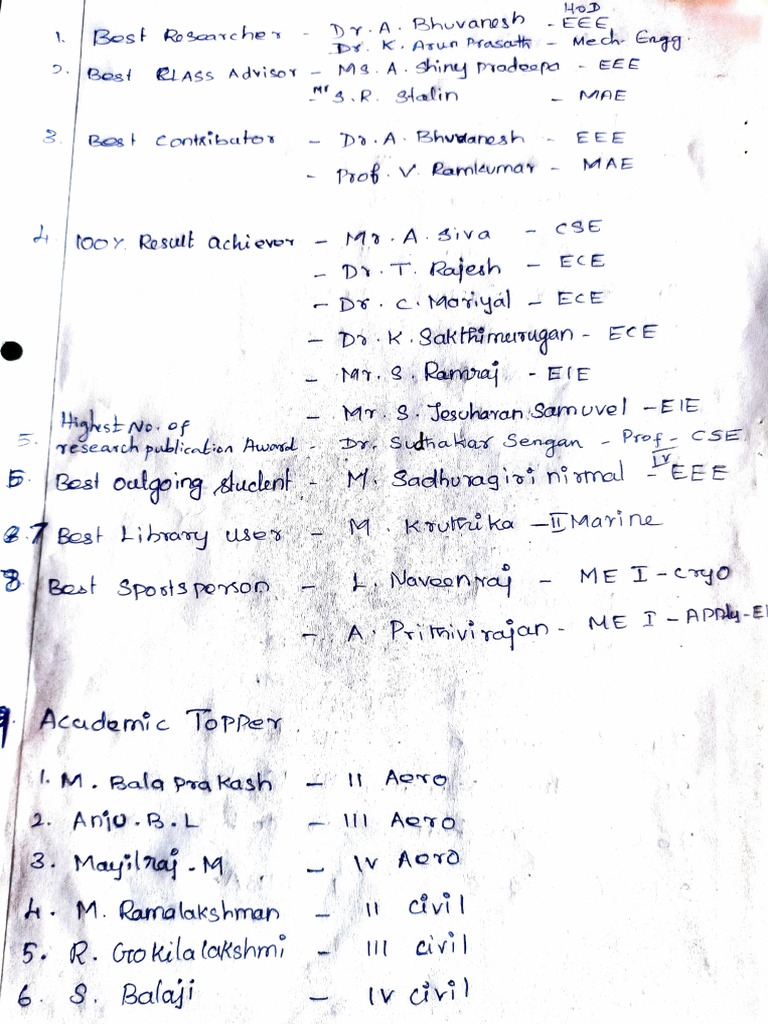 HOD
1. Best Researcher - Dr. A. Bhuvanesh - EEE
Dr. K. Arun Prasath - Mech. Engg.
2. Best Class Advisor - Ms. A. Shiny Pradeepa - EEE
- Mr S. R. Stalin - MAE
3. Best Contributor - Dr. A. Bhuvanesh - EEE
- Prof. V. Ramkumar - MAE
4. 100% Result achiever - Mr. A. Siva - CSE
- Dr. T. Rajesh - ECE
- Dr. C. Mariyal - ECE
- Dr. K. Sakthimurugan - ECE
- Mr. S. Ramraj - EIE
- Mr. S. Jesuharan Samuvel - EIE
Highest No. of
5. research publication Award - Dr. Sudhakar Sengan - Prof - CSE
6. Best outgoing student - M. Sadhuragiri nirmal - IV EEE
7 Best Library user - M. Kruthika - II Marine
8 Best Sportsperson - L. Naveenraj - ME I - Cryo
- A. Prithivirajan - ME I - APPly - EI
9. Academic Topper
1. M. Bala prakash - II Aero
2. Anju. B. L - III Aero
3. Mayilraj - M - IV Aero
4. M. Ramalakshman - II civil
5. R. Gokilalakshmi - III civil
6 S. Balaji - IV civil